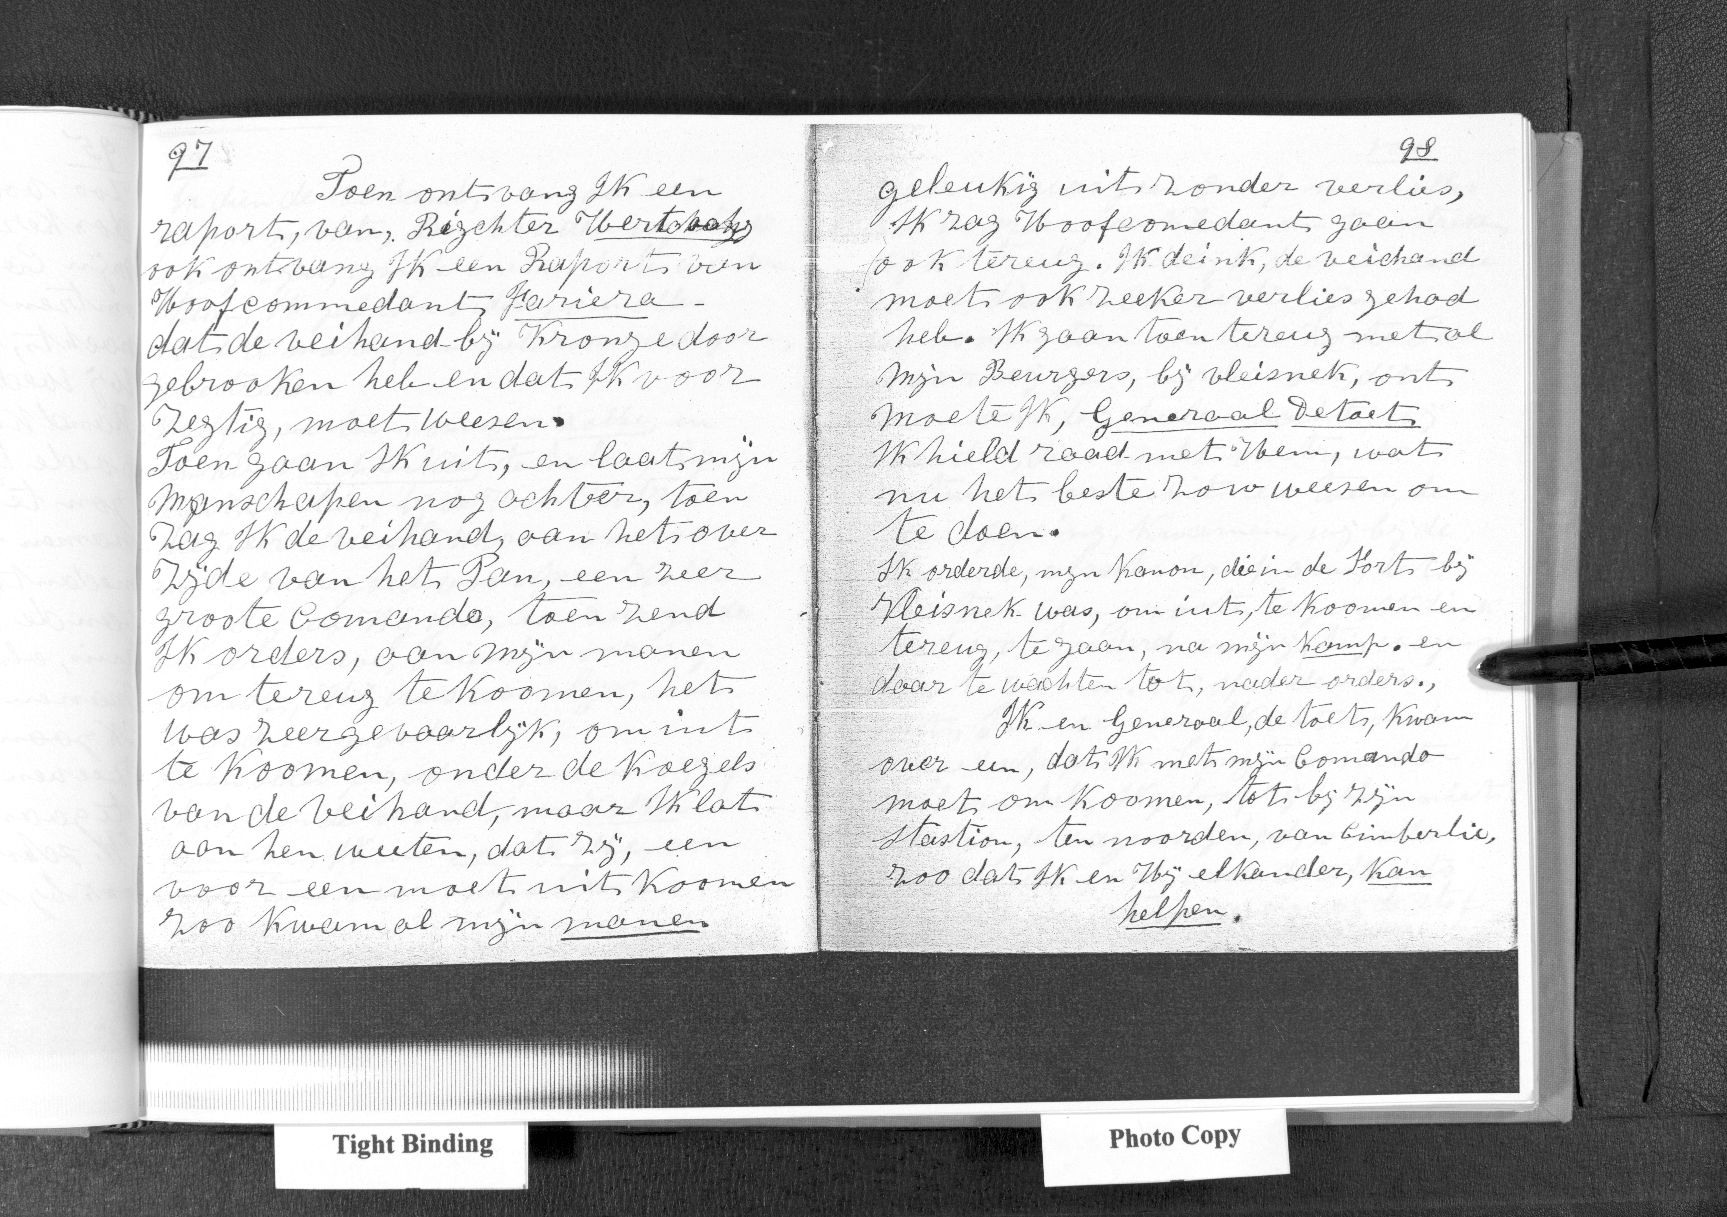 97
Toen ontvang Ik een
raport, van, Rigchter Hertzoch
ook ontvang Ik een Raport van
Hoofcommedant Fariera -
dat de veihand bij Kronge door
gebrooken heb en dat Ik voor
zegtig, moet weesen.
Toen gaan Ik uit, en laat mijn
Manschapen nog achter, toen
zag Ik de veihand, aan het over
zijde van het Pan, een zeer
groote Comando, toen zend
Ik orders, aan mijn manen
om tereug te koomen, het
was zeer gevaarlijk, om uit
te koomen, onder de koegels
van de veihand, maar Ik lat
aan hen weeten, dat zij, een
voor een moet uit koomen
zoo kwam al mijn manen
98
geleukig uit zonder verlies,
Ik zag Hoofcomedant gaan
ook tereug. Ik deink, de veichand
moet ook zeeker verlies gehad
heb. Ik gaan toen tereug met al
mijn Beurgers, bij vleisnek, ont
moete Ik, Generaal Detoet
Ik hield raad met Hem, wat
nu het beste zow weesen om
te doen.
Ik orderde, mijn Kanon, die in de Fort bij
Vleisnek was, om uit, te koomen en
tereug, te gaan, na mijn Kamp. en
daar te wachten tot, nader orders.,
Ik en Generaal, de toet, kwam
over een, dat Ik met mijn Comando
moet om koomen, tot bij zijn
Stastion, ten noorden, van Cimberlie,
zoo dat Ik en Hij elkander, kan
helpen.
Tight Binding
Photo Copy